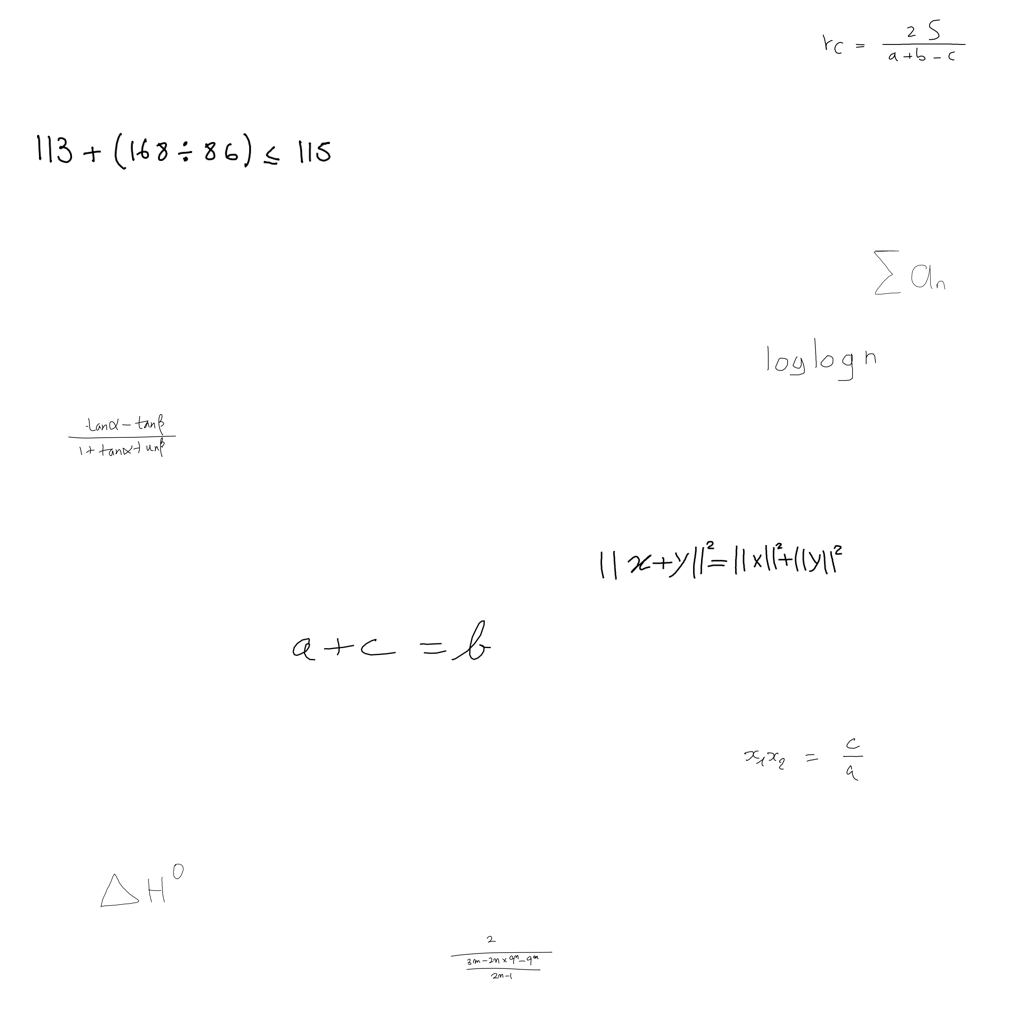 r_c = \frac{2S}{a+b-c}
113 + (168 ÷ 86) ≤ 115
\sum a_n
log log n
\frac{tanα - tanβ}{1 + tanα tanβ}
||x+y||^2 = ||x||^2 + ||y||^2
a + c = b
x_1x_2 = \frac{c}{a}
△H^0
\frac{2}{\frac{3m-2n×9^n-9^m}{2n-1}}